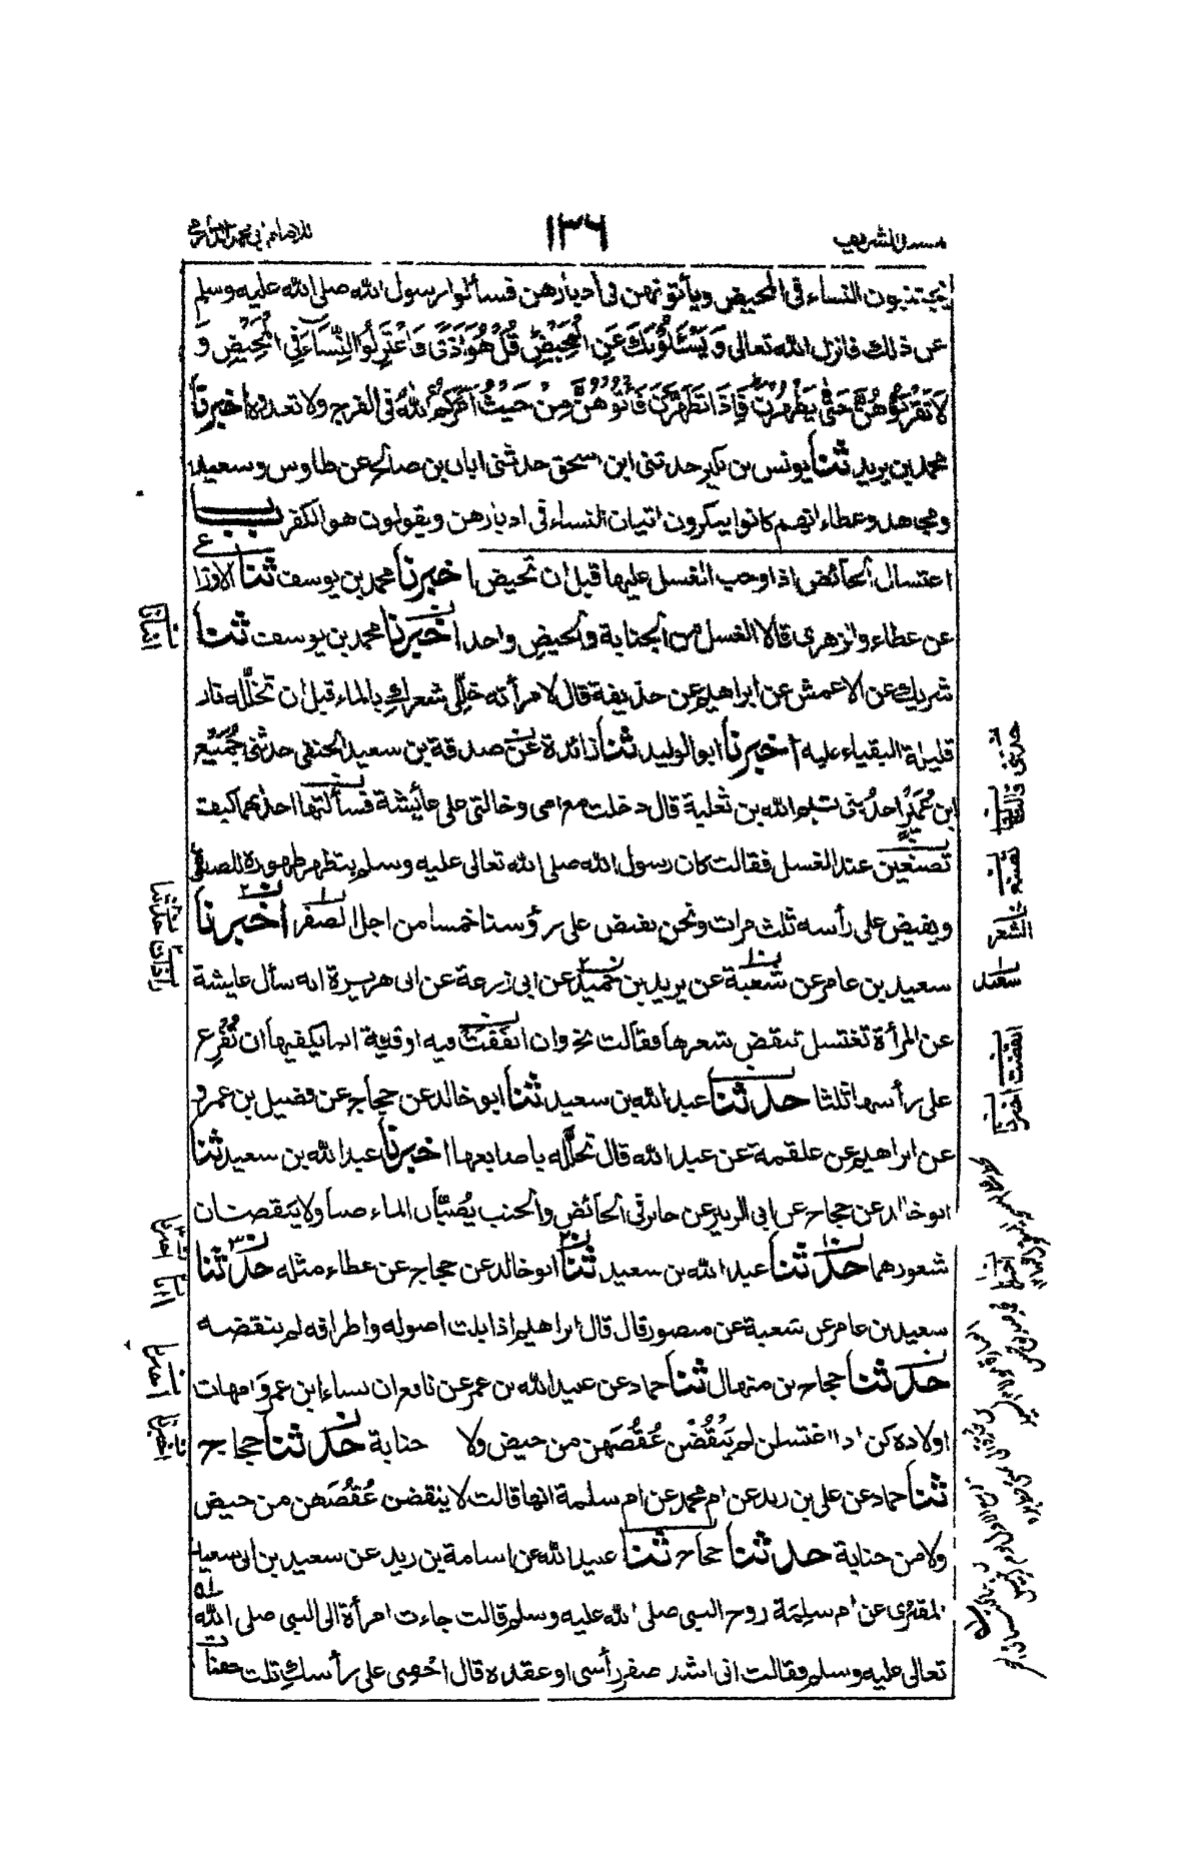 مسند الشريف
١٣٦
للامام ابي محمد الدارمي
يجتنبون النساء في المحيض ويأتونهن في أدبارهن فسألوا رسول الله صلى الله عليه وسلم
عن ذلك فانزل الله تعالى وَيَسْئَلُوْنَكَ عَنِ الْمَحِيْضِ قُلْ هُوَ اَذًى فَاعْتَزِلُوا النِّسَاءَ فِي الْمَحِيْضِ وَ
لَا تَقْرَبُوْهُنَّ حَتّٰى يَطْهُرْنَ فَاِذَا تَطَهَّرْنَ فَأْتُوْهُنَّ مِنْ حَيْثُ اَمَرَكُمُ اللّٰهُ في الفرج ولا تعدوه اخبرنا
محمد بن يزيد ثنا يونس بن بكير حدثنى ابن اسحق حدثنى ابان بن صالح عن طاوس وسعيد
ومجاهد وعطاء انهم كانوا ينكرون اتيان النساء في ادبارهن ويقولون هو الكفر باب
اغتسال الحائض اذا وجب الغسل عليها قبل ان تحيض اخبرنا محمد بن يوسف ثنا الاوزاعى
عن عطاء والزهرى قالا الغسل من الجنابة والحيض واحد اخبرنا محمد بن يوسف ثنا
شريك عن الاعمش عن ابراهيم عن حذيفة قال لامرأته خللى شعرك بالماء قبل ان تخلله نار
قليلة البقياء عليه اخبرنا ابو الوليد ثنا زائدة عن صدقة بن سعيد الحنفى حدثنى جُمَيْع
ابن عُمَيْر احد بنى تيم الله بن ثعلبة قال دخلت مع امى وخالتى على عائشة فسألتها احداهما كيف
تصنعين عند الغسل فقالت كان رسول الله صلى الله تعالى عليه وسلم يتطهر طهوره للصلوة
ويفيض على رأسه ثلث مرات ونحن نفيض على رؤسنا خمسا من اجل الضفر اخبرنا
سعيد بن عامر عن شعبة عن يزيد بن خميد عن ابى زرعة عن ابى هريرة انه سأل عايشة
عن المرأة تغتسل تنقض شعرها فقالت بخ وان انفقت فيه اوقية انما يكفيها ان تُفْرِغ
على رأسها ثلثا حدثنا عبد الله بن سعيد ثنا ابو خالد عن حجاج عن فضيل بن عمرو
عن ابراهيم عن علقمة عن عبد الله قال تخلّله باصابعها اخبرنا عبد الله بن سعيد ثنا
ابو خالد عن حجاج عن ابى الزبير عن جابر في الحائض والجنب يُصُبّان الماء صبا ولا ينقضان
شعورهما حدثنا عبد الله بن سعيد ثنا ابو خالد عن حجاج عن عطاء مثله حدثنا
سعيد بن عامر عن شعبة عن منصور قال قال ابراهيم اذا بلت اصوله واطرافه لم ينقضه
حدثنا حجاج بن منهال ثنا حماد عن عبيد الله بن عمر عن نافع ان نساء ابن عمر وامهات
اولاده كن اذا اغتسلن لم يَنْقُضْن عُقُصَهن من حيض ولا جنابة حدثنا حجاج
ثنا حماد عن على بن زيد عن ام محمد عن ام سلمة انها قالت لا ينقضن عُقُصَهن من حيض
ولا من جنابة حدثنا حجاج ثنا عبيد الله عن اسامة بن زيد عن سعيد بن ابى سعيد
المقبرى عن ام سلمة زوج النبى صلى الله عليه وسلم قالت جاءت امرأة الى النبى صلى الله
تعالى عليه وسلم فقالت انى اشد ضفر رأسى او عقده قال احْفِى على رأسكِ ثلث حفنات
حدثنى
الشعر
سعيد
انفقت اخبرنا